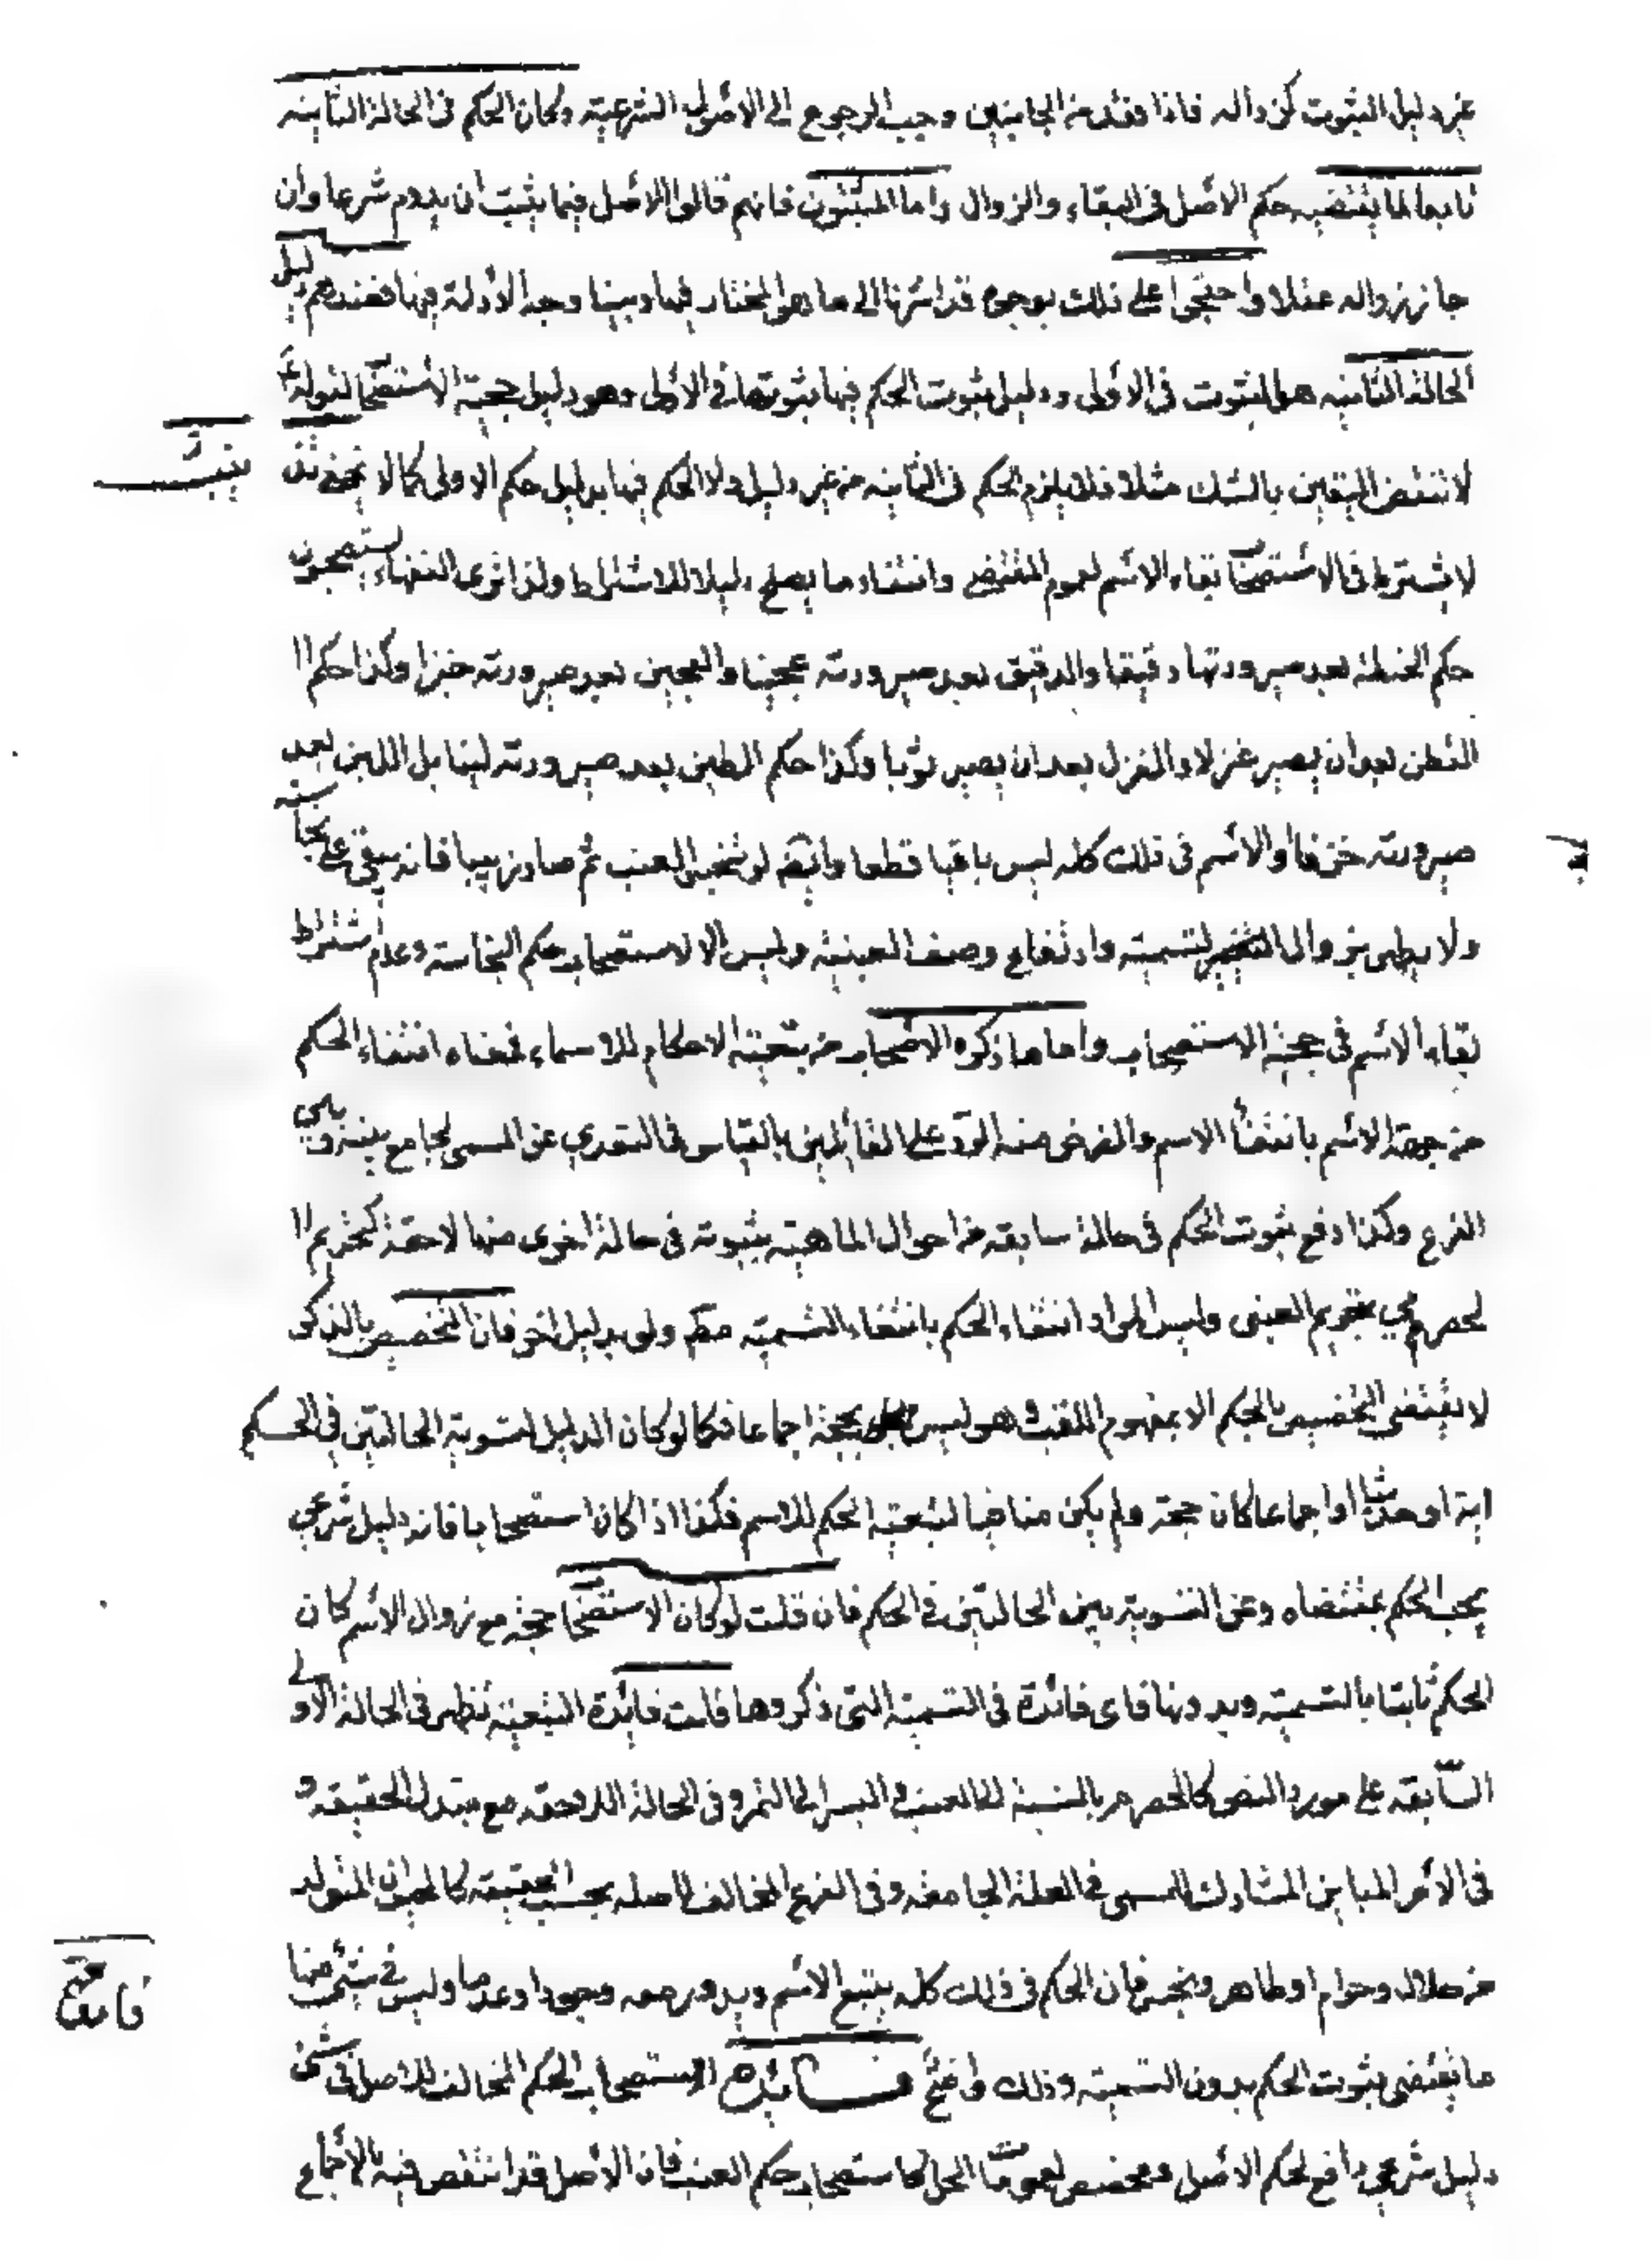 غير دليل الثبوت كزواله فاذا فقد من الجانبين وجب الرجوع الى الاصول الشرعية وكان الحكم في الحالة الثانية
تابعا لما يقتضيه حكم الاصل في البقاء والزوال واما المثبتون فانهم قالوا الاصل فيما يثبت ان يدوم شرعا وان
جاز زواله عقلا واحتجوا على ذلك بوجوه قد اشرنا الى ما هو المختار فيها وبينا وجه الادلة فيها فعندهم دليل
الحالة الثانيه هو الثبوت في الاولى ودليل ثبوت الحكم فيها ثبوتها في الاولى وهو دليل حجية الاستصحاب لقوله ع
لا تنقض اليقين بالشك مثلا فلا يلزم الحكم في الثانيه من غير دليل ولا الحكم فيها بدليل حكم الاولى كما لا يخفى
تنبيه
لا يشترط في الاستصحاب بقاء الاسم لعموم المقتضي وانتفاء ما يصلح دليلا للاشتراط ولذا نرى الفقهاء يستصحبون
حكم الحنطة بعد صيرورتها دقيقا والدقيق بعد صيرورته عجينا والعجين بعد صيرورته خبزا وكذا حكم ا
القطن بعد ان يصير غزلا والغزل بعد ان يصير ثوبا وكذا حكم الطين بعد صيرورته لبنا بل اللبن بعد
صيرورته خزفا والاسم في ذلك كله ليس باقيا قطعا وايضه لو تنجس العنب ثم صار زبيبا فانه يبقى على نجاسته
ولا يطهر بزوال التسمية وارتفاع وصف العنبية وليس الا لاستصحاب حكم النجاسة وعدم اشتراط
بقاء الاسم في حجية الاستصحاب واما ما ذكره الاصحاب من تبعية الاحكام للاسماء فمعناه انتفاء الحكم
من جهة الاسم بانتفاء الاسم والغرض منه الرد على القائلين بالقياس في التعدي عن المسمى لجامع بينه وبين
الفرع وكذا دفع ثبوت الحكم في حالة سابقه من احوال الماهية بثبوته في حالة اخرى منها لاحقة كتحريم ا
لحصرم بتحريم العنبى وليس المراد انتفاء الحكم بانتفاء التسمية مطم ولو بدليل اخر فان التخصيص بالذكر
لا يقتضى التخصيص بالحكم الا بمفهوم اللقب وهو ليس بحجة اجماعا فكما لو كان الدليل لتسوية الحالتين في الحكم
اية او حديثا او اجماعا كان حجة ولم يكن منافيا لتبعية الحكم للاسم فكذا اذا كان استصحابا فانه دليل شرعي
يجب الحكم بمقتضاه وعن التسوية بين الحالتين في الحكم فان قلت لو كان الاستصحاب حجة مع زوال الاسم كان
الحكم ثابتا بالتسمية وبدونها فاى فائدة في التسمية التي ذكروها قلت فائدة التبعية تظهر في الحالة الاولى
السابقة على مورد النص كالحصرم بالنسبة الى العنب والبسر الى التمر وفي الحالة اللاحقه مع تبدل الحقيقه و
في الامر المباين المشارك للمسمى في العلة الجامعه وفي الفرع المخالف لاصله بحسب الحقيقة كالحيوان المتولد
من حلال وحرام او طاهر ونجس فان الحكم في ذلك كله يتبع الاسم ويدور معه وجودا وعدما وليس في شئ منها
ما يقتضى ثبوت الحكم بدون التسمية وذلك واضح فائدة الاستصحاب الحكم المخالف للاصل في شئ
فائدة
دليل شرعي رافع لحكم الاصل ومخصص لعمومات الحل كاستصحاب حكم العنب فان الاصل قد انتقض فيه بالاجماع